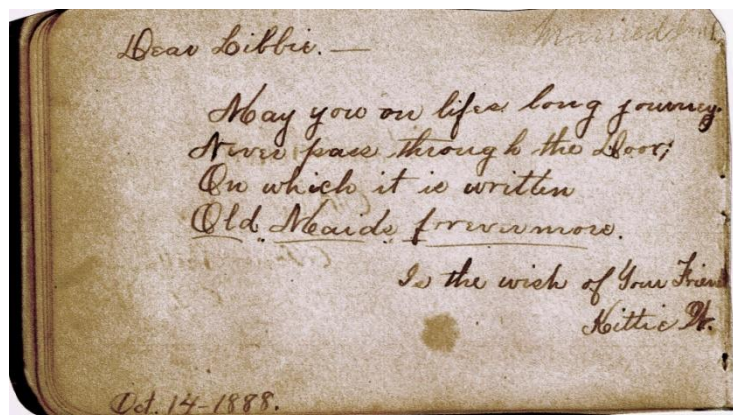 Dear Libbie. —
married
May you on lifes long journey.
Never pass through the Door;
On which it is written
Old Maids forevermore.
Is the wish of Your Friend
Kittie W.
Oct. 14-1888.